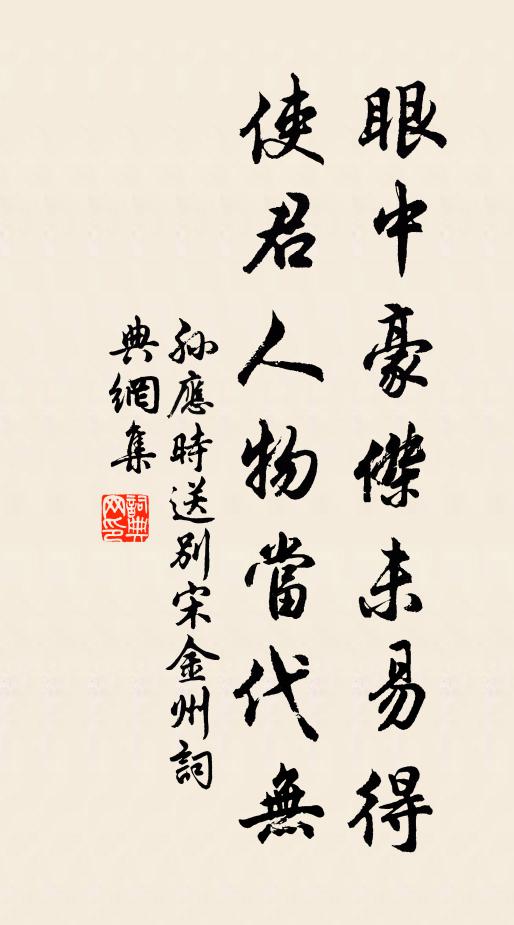 眼中豪傑未易得
使君人物當代無
孫應時送別宋金州詞
典網集
詞典網印